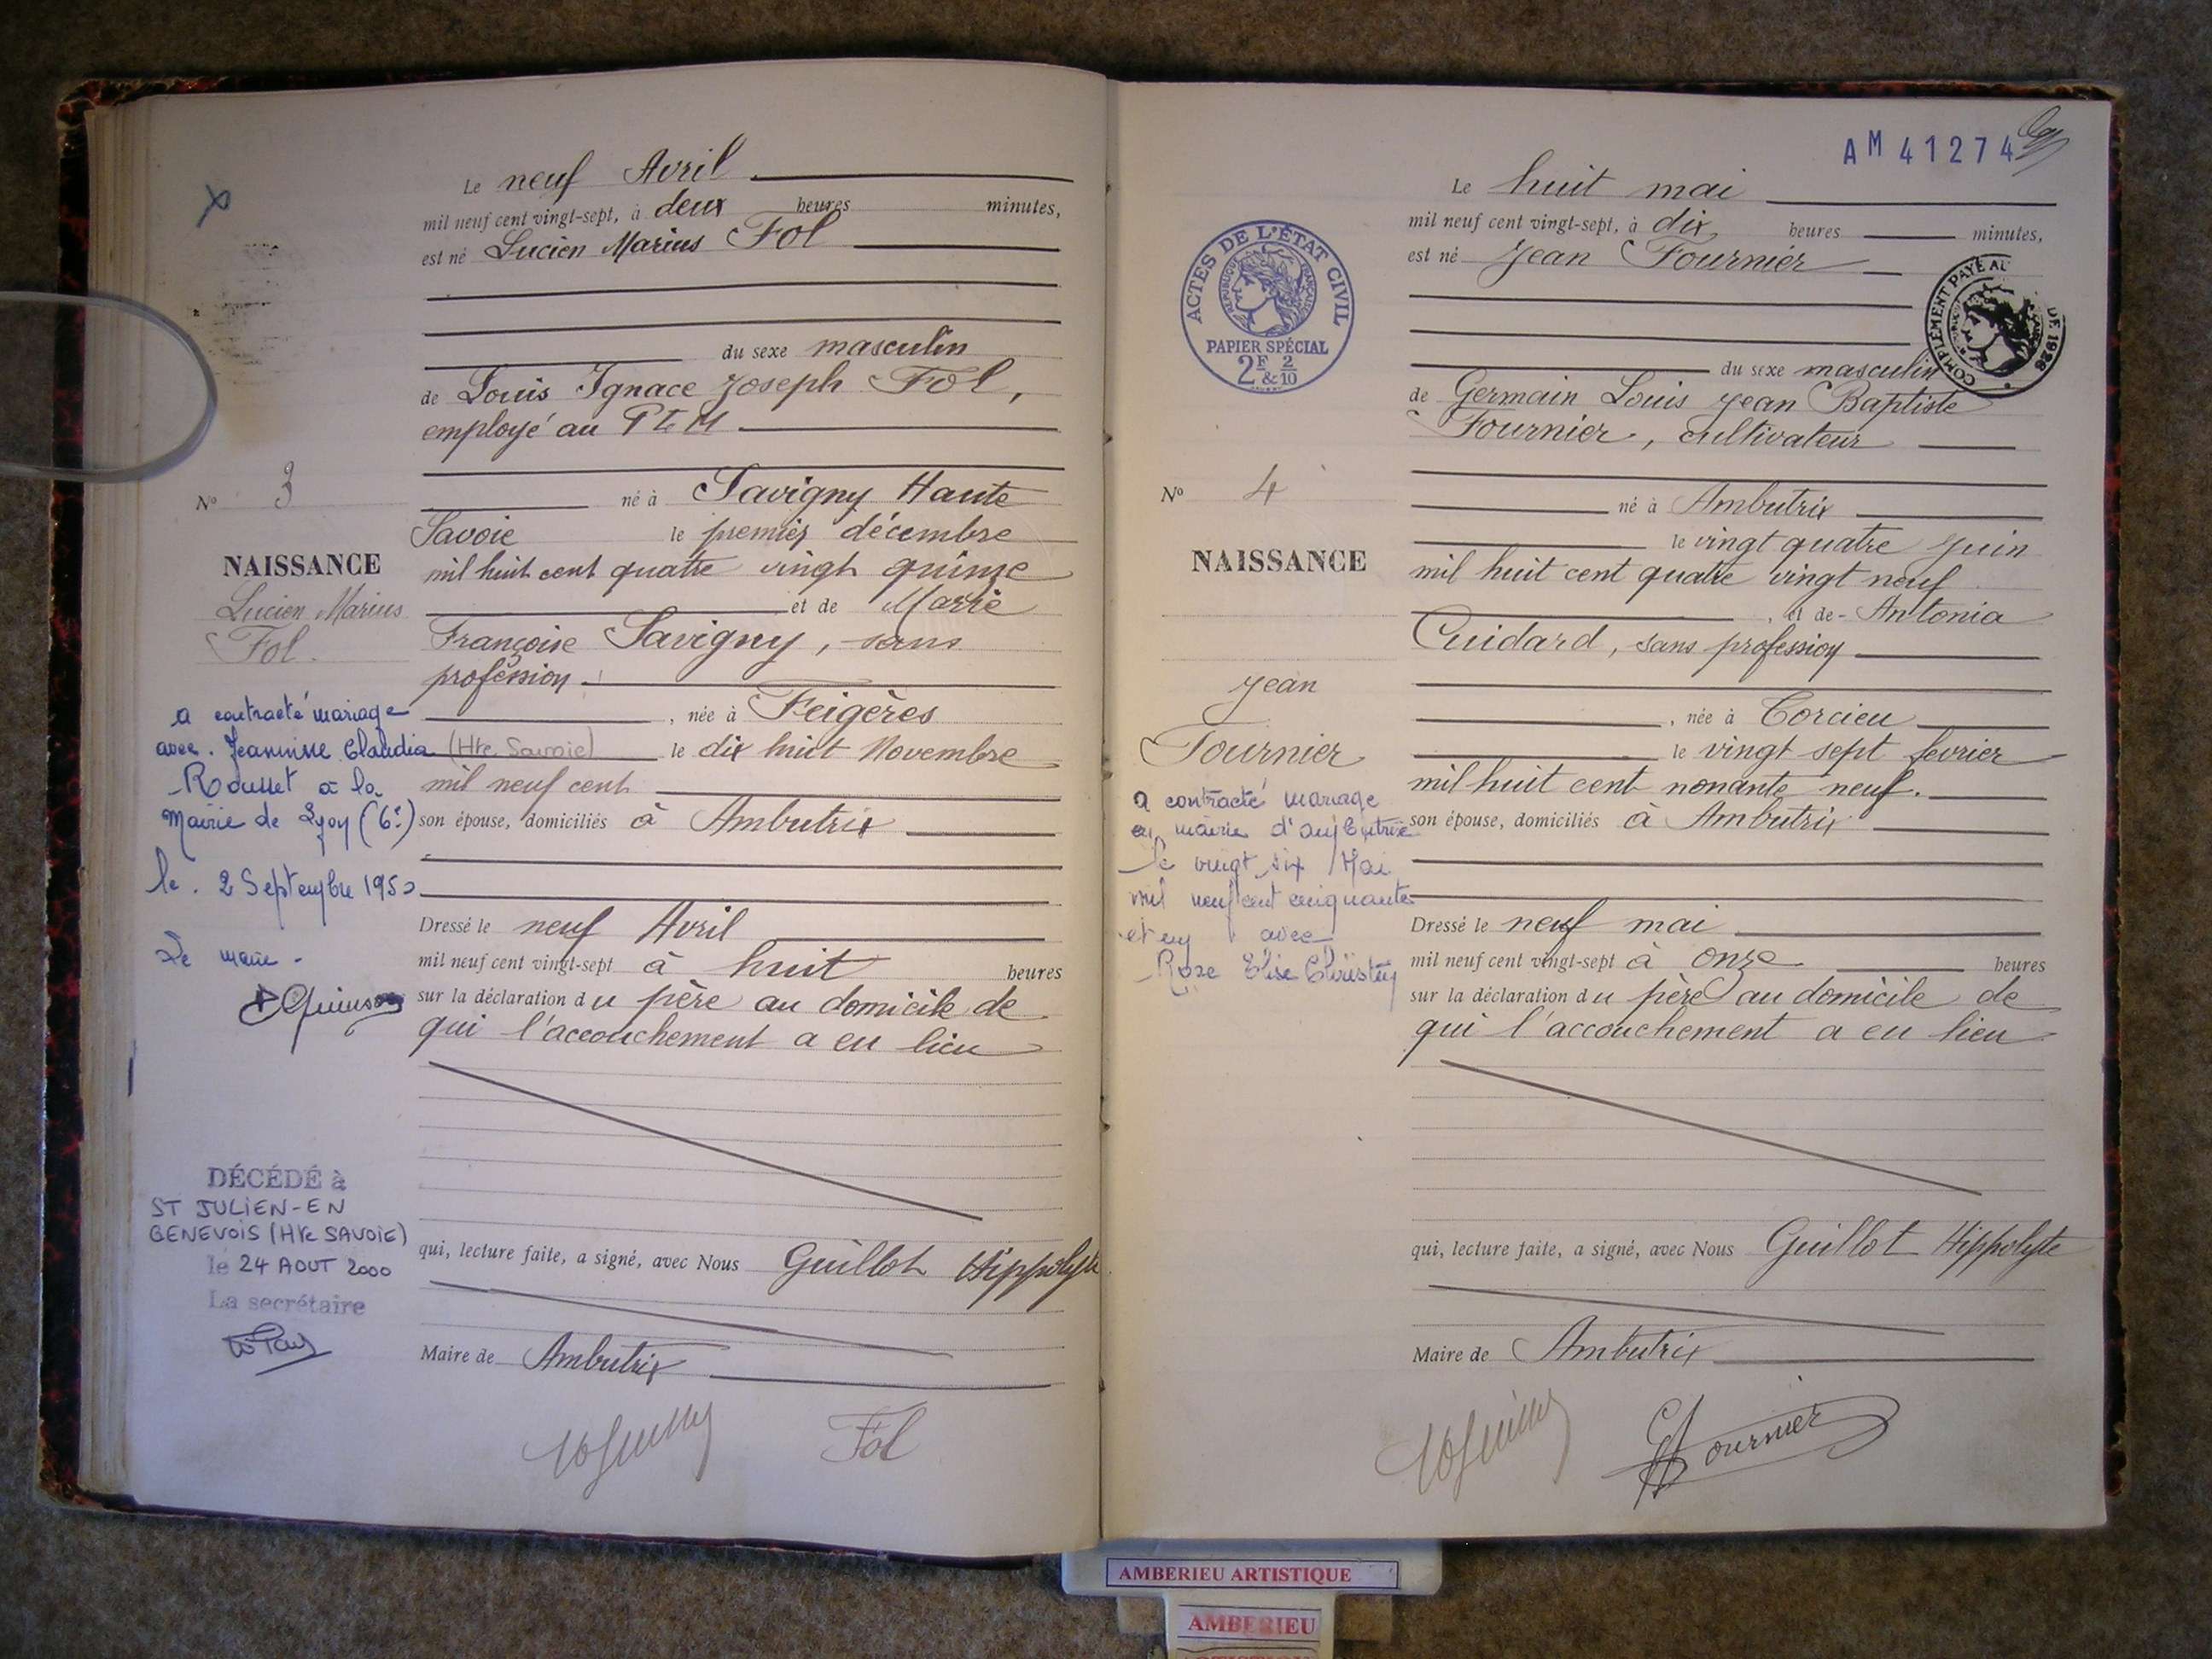 Le neuf Avril
mil neuf cent vingt-sept, à deux heures minutes,
est né Lucien Marius Fol
du sexe masculin
de Louis Ignace Joseph Fol,
employé au PLM
né à Savigny Haute
Savoie le premier décembre
mil huit cent quatre vingt quinze
et de Marie
Françoise Savigny, sans
profession
, née à Feigères
(Hte Savoie) le dix huit Novembre
mil neuf cent
son épouse, domiciliés à Ambutrix
Dressé le neuf Avril
mil neuf cent vingt-sept à huit heures
sur la déclaration du père au domicile de
qui l'accouchement a eu lieu
qui, lecture faite, a signé, avec Nous Guillot Hippolyte
Maire de Ambutrix
Fol
No 3
NAISSANCE
Lucien Marius
Fol
a contracté mariage
avec Jeannine Claudia
Rousset à la
Mairie de Lyon (6e)
le 2 Septembre 1950
Le maire
DÉCÉDÉ à
ST JULIEN-EN
GENEVOIS (Hte SAVOIE)
le 24 AOUT 2000
La secrétaire
AM 41274
Le huit mai
mil neuf cent vingt-sept, à dix heures minutes,
est né Jean Fournier
du sexe masculin
de Germain Louis Jean Baptiste
Fournier, cultivateur
né à Ambutrix
le vingt quatre Juin
mil huit cent quatre vingt neuf
, et de Antonia
Cuidard, sans profession
, née à Torcieu
le vingt sept fevrier
mil huit cent nonante neuf.
son épouse, domiciliés à Ambutrix
Dressé le neuf mai
mil neuf cent vingt-sept à onze heures
sur la déclaration du père au domicile de
qui l'accouchement a eu lieu
qui, lecture faite, a signé, avec Nous Guillot Hippolyte
Maire de Ambutrix
Fournier
ACTES DE L'ÉTAT CIVIL
RÉPUBLIQUE FRANÇAISE
PAPIER SPÉCIAL
2F & 2/10
COMPLÉMENT PAYÉ AU
DE 1926
No 4
NAISSANCE
Jean
Fournier
a contracté mariage
en mairie d'Ambutrix
le vingt six Mai
mil neuf cent cinquante
et un avec
Rose Elise
AMBERIEU ARTISTIQUE
AMBERIEU
ARTISTIQUE